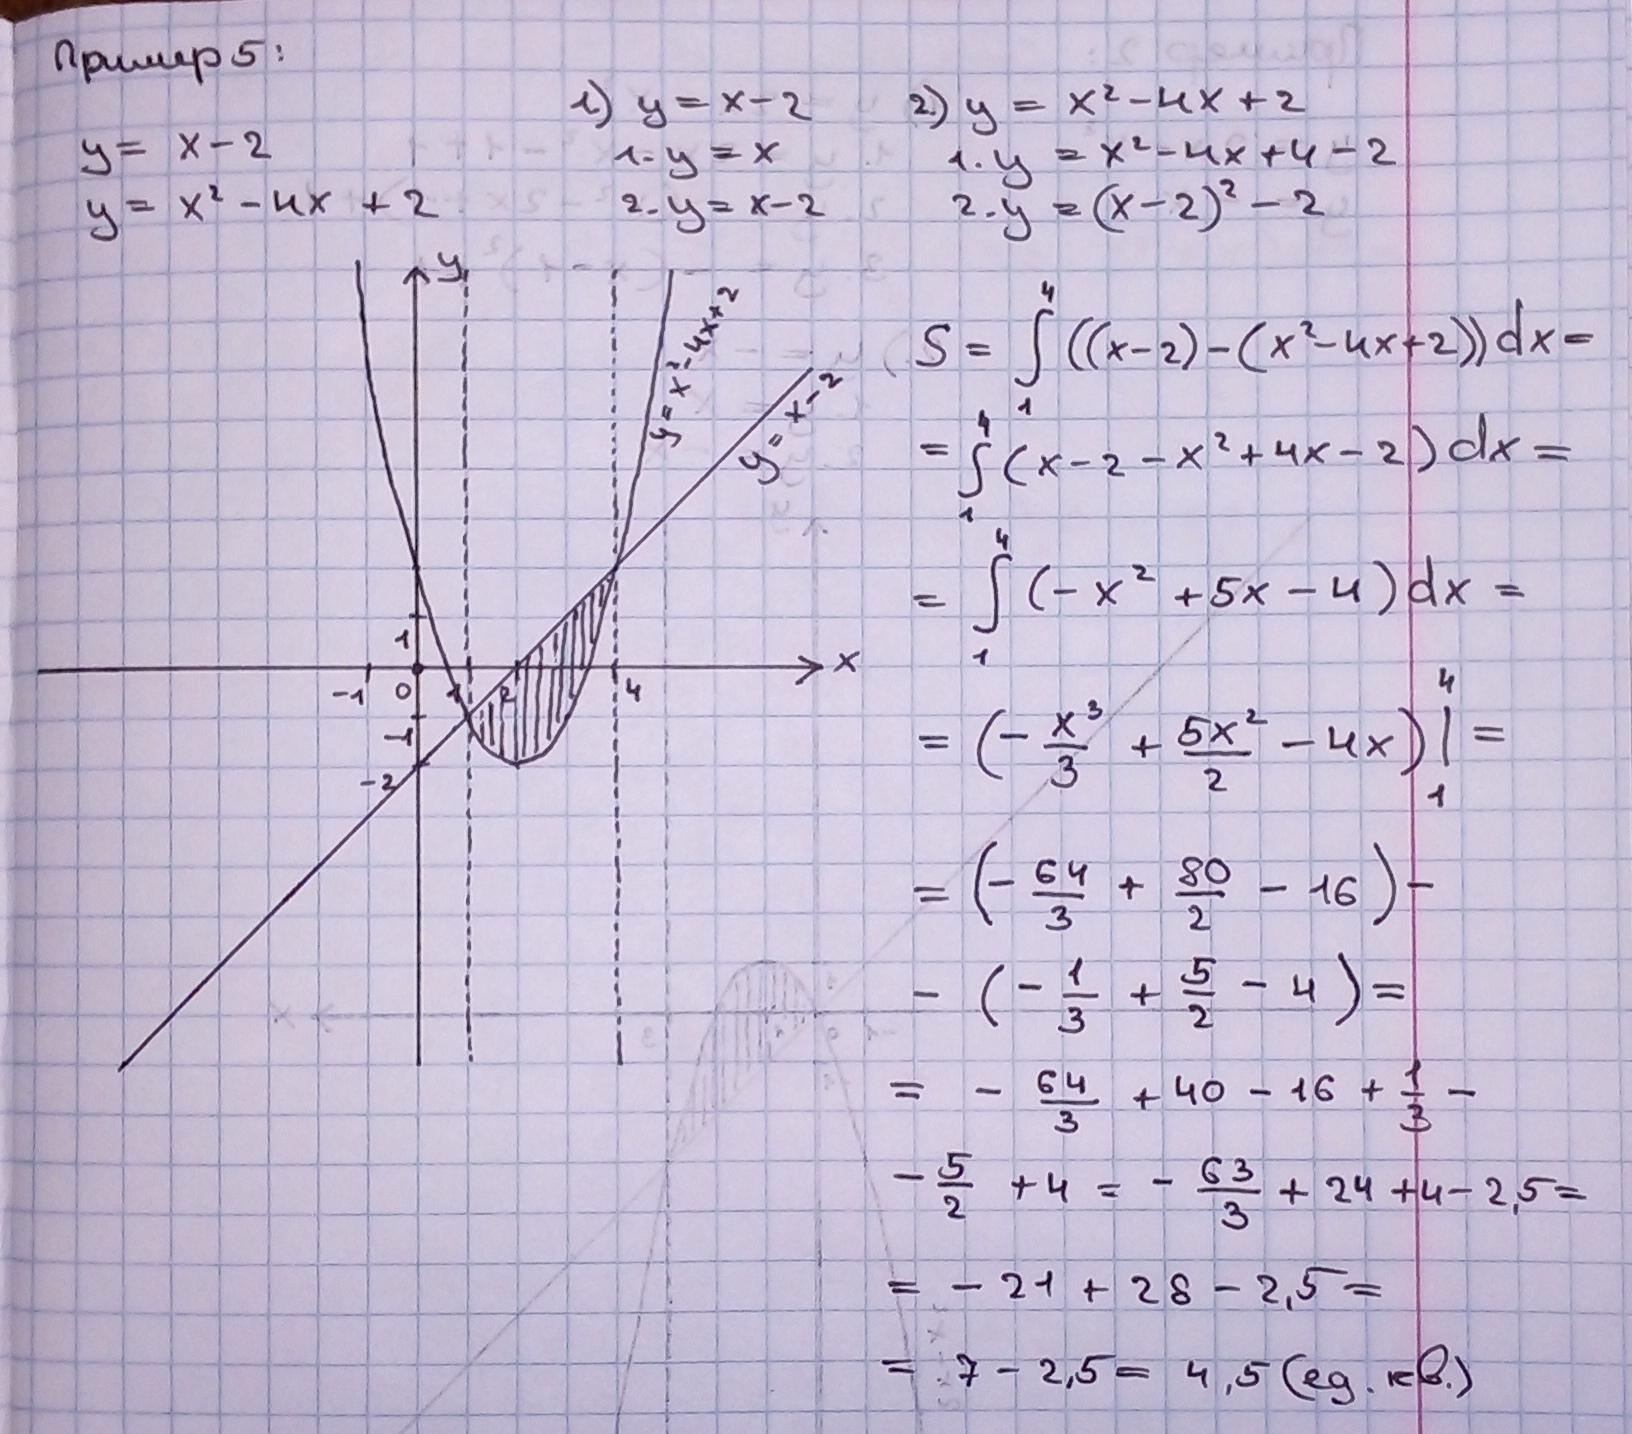 Пример 5:
y = x - 2
y = x² - 4x + 2
1) y = x - 2
1. y = x
2. y = x - 2
2) y = x² - 4x + 2
1. y = x² - 4x + 4 - 2
2. y = (x - 2)² - 2
y
y = x² - 4x + 2
y = x - 2
1
x
-1 0 1 2 4
-1
-2
S = ∫₁⁴ ((x-2) - (x² - 4x + 2)) dx =
= ∫₁⁴ (x - 2 - x² + 4x - 2) dx =
= ∫₁⁴ (- x² + 5x - 4) dx =
= (- x³/3 + 5x²/2 - 4x) |₁⁴ =
= (- 64/3 + 80/2 - 16) -
- (- 1/3 + 5/2 - 4) =
= - 64/3 + 40 - 16 + 1/3 -
- 5/2 + 4 = - 63/3 + 24 + 4 - 2,5 =
= - 21 + 28 - 2,5 =
= 7 - 2,5 = 4,5 (ед. кв.)